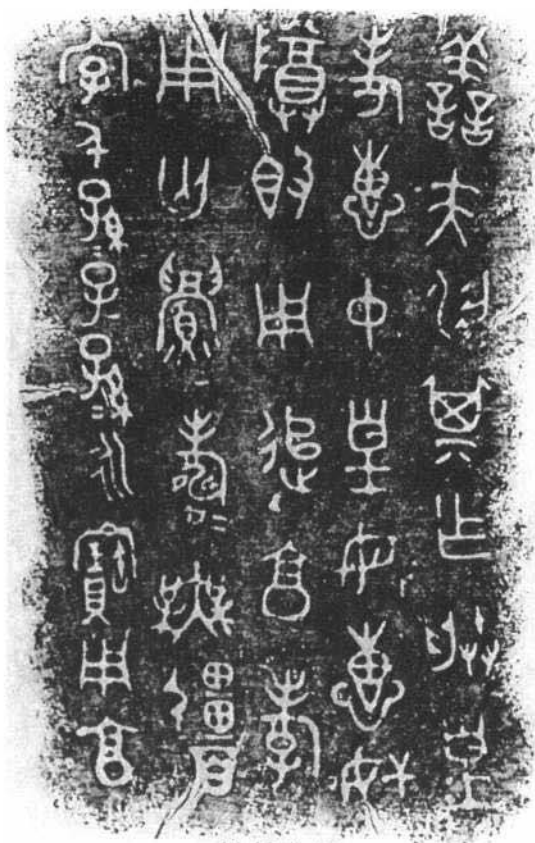 譱夫汈其乍朕皇
考惠中皇母惠妣
尊𣪘用追亯孝
用匄眉壽=無疆百
字千孫子=孫=永寶用亯